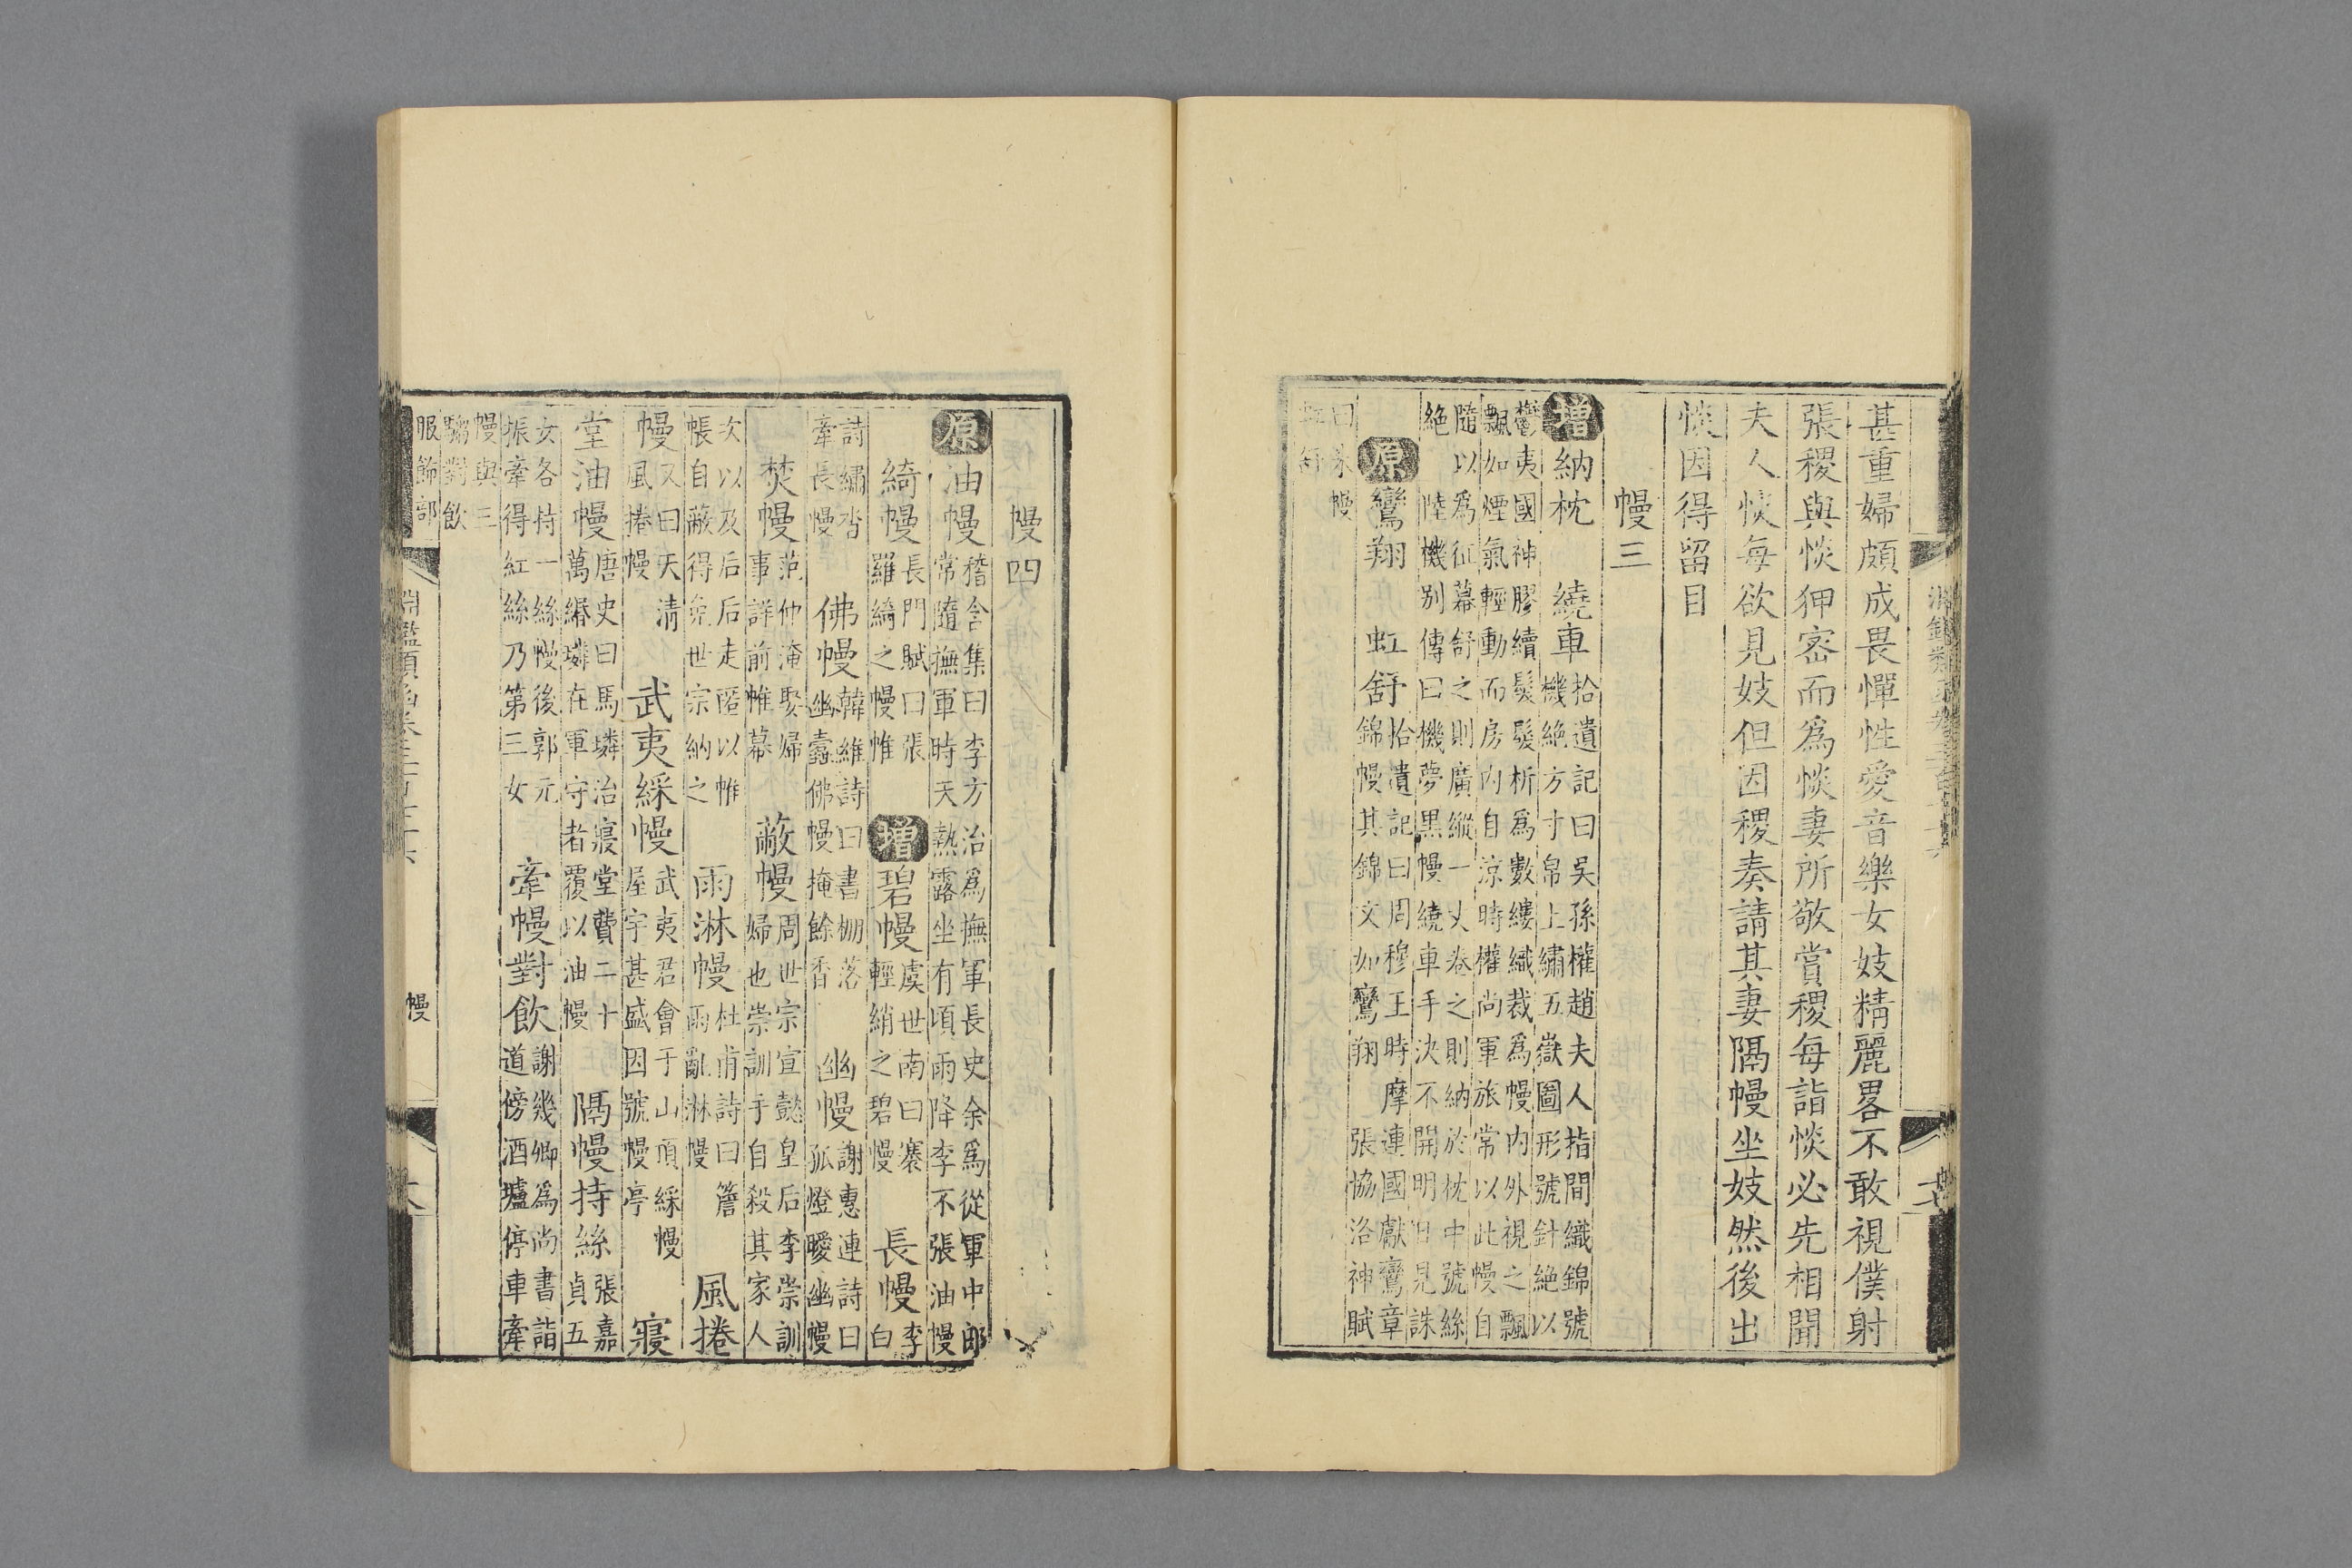 甚重婦頗成畏憚性愛音樂女妓精麗畧不敢視僕射
張稷與惔狎密而爲惔妻所敬賞稷每詣惔必先相聞
夫人惔每欲見妓但因稷奏請其妻隔幔坐妓然後出
惔因得留目
幔三
增納枕　繞車拾遺記曰吳孫權趙夫人指間織錦號
機絕方寸帛上繡五嶽圖形號針絕以
鬱夷國神膠續髮髮析爲數縷織裁爲幔內外視之飄
飄如煙氣輕動而房內自涼時權尚軍旅常以此幔自
隨以爲征幕舒之則廣縱一丈卷之則納於枕中號絲
絕　陸機別傳曰機夢黑幔繞車手決不開明日見誅
原鸞翔　虹舒拾遺記曰周穆王時摩連國獻鸞章
錦幔其錦文如鸞翔　張協洛神賦
曰朱幔
虹舒
幔四
原油幔嵇含集曰李方治爲撫軍長史余爲從軍中郎
常隨撫軍時天熱露坐有頃雨降李不張油幔
綺幔長門賦曰張
羅綺之幔帷
增碧幔虞世南曰褰
輕綃之碧幔
長幔李
白
詩繡沓
牽長幔
佛幔韓維詩曰書棚落
幽蠹佛幔掩餘香
幽幔謝惠連詩曰
孤燈曖幽幔
焚幔范仲淹娶婦
事詳前帷幕
蔽幔周世宗宣懿皇后李崇訓
婦也崇訓于自殺其家人
次以及后后走匿以帷
帳自蔽得免世宗納之
雨淋幔杜甫詩曰簷
雨亂淋幔
風捲
幔又曰天清
風捲幔
武夷綵幔武夷君會于山頂綵幔
屋宇甚盛因號幔亭
寢
堂油幔唐史曰馬璘治寢堂費二十
萬緡璘在軍守者覆以油幔
隔幔持絲張嘉
貞五
女各持一絲幔後郭元
振牽得紅絲乃第三女
牽幔對飲謝幾卿爲尚書詣
道傍酒壚停車牽
幔與三
騶對飲
服飾部
幔